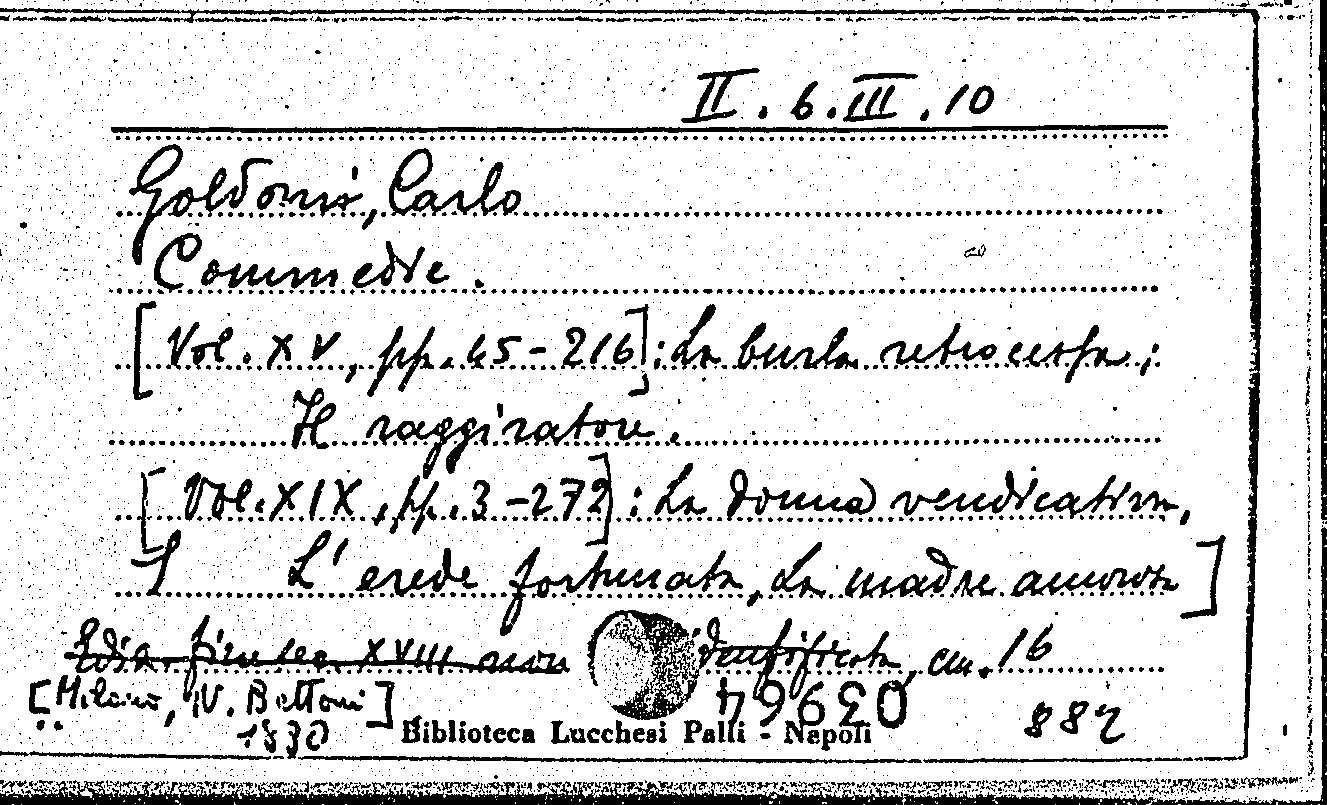 II. 6. III. 10
Goldoni, Carlo
Commedie.
[Vol. XV, pp. 45-216]: La burla retrocessa;
Il raggiratore.
[Vol. XIX, pp. 3-272]: La donna vendicativa,
L'erede fortunata, La madre amorosa]
Ediz. fine sec. XVIII non identificata, cm. 16
[Milano, N. Bettoni]
1830
03964
887
Biblioteca Lucchesi Palli - Napoli